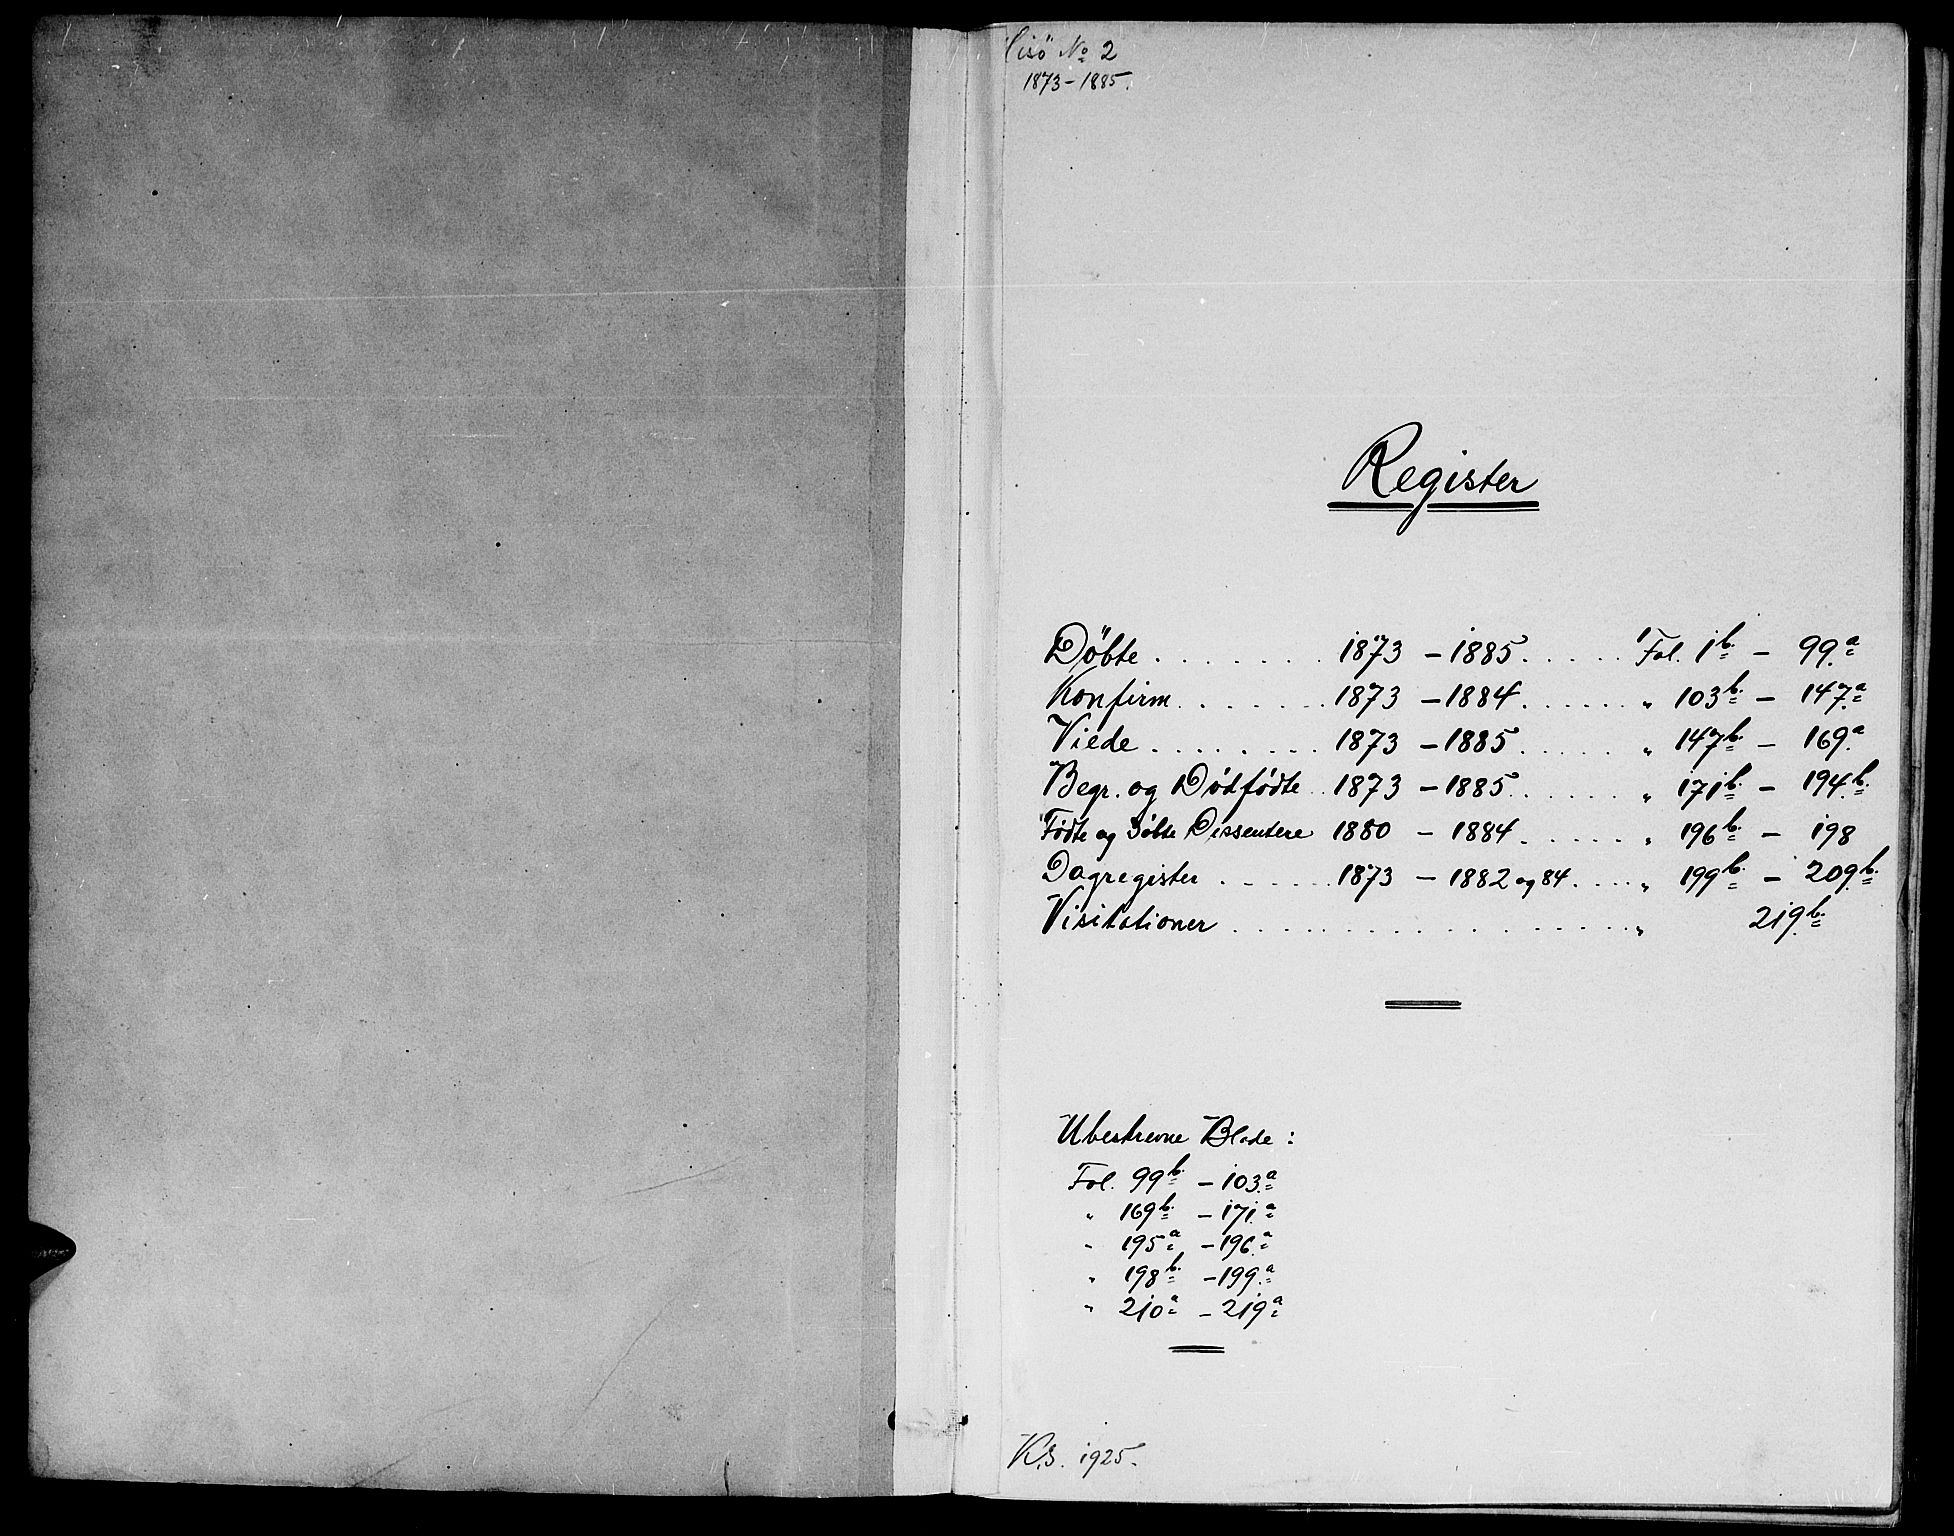 Hisö № 2
1873-1885.
Register
Döbte . . . . . . . 1873 - 1885. . . . . . Fol. 1b. - 99.a
Konfirm. . . . . . . 1873 - 1884. . . . . . " 103b. - 147.a
Viede . . . . . . . . 1873 - 1885 . . . . . . " 147b. - 169.a
Begr. og Dødfødte . . 1873 - 1885. . . . . . " 171b. - 194.b.
Fødte og døbte Dissentere 1880 - 1884. . . . . . " 196b. - 198
Dagregister . . . . . . 1873 - 1882 og 84. . . . . " 199b. - 209.b.
Visitationer . . . . . . . . . . . . . . . . . . " 219.b.
Ubeskrevne Blade :
Fol. 99b. - 103.a
" 169b. - 171.a
" 195a - 196.a
" 198b. - 199.a
" 210a - 219.a
K.S. 1925.